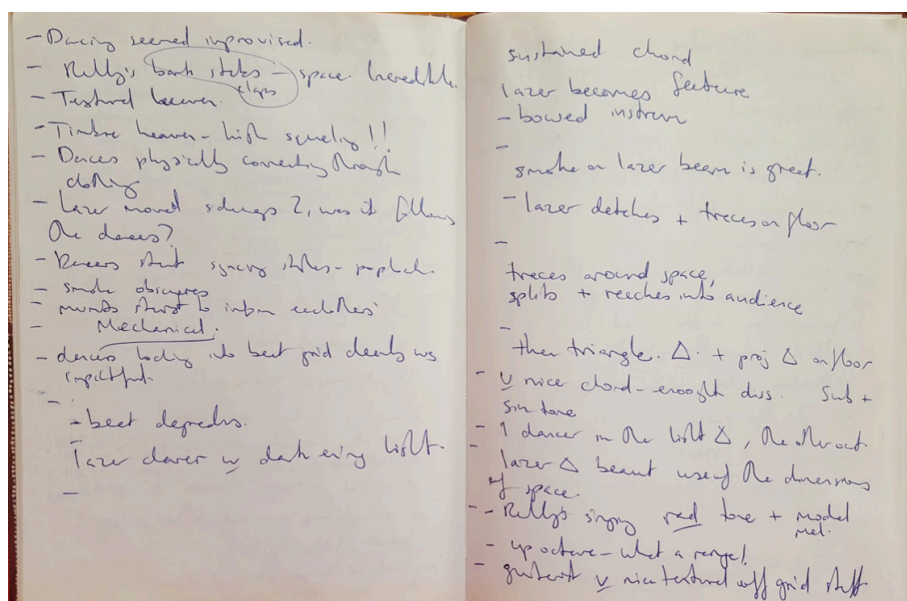 - Dancing seemed improvised.
- Reilly's sticks - space. Incredible.
claps
- Textural heaven.
- Timbre heaven - high squealing!!
- Dancers physically connecting through
clothing
- Lazer moved 2, was it following
the dancers?
- Dancers start syncing
- smoke obscures
- start to each others
- Mechanical.
- dancers locking into beat grid clearly was
impactful.
-
- beat degrades.
lazer clearer w darkening light.
-
sustained chord
lazer becomes feature
- bowed instrum
-
smoke on lazer beam is great.
- lazer detches + traces on floor
-
traces around space,
splits + reaches into audience
-
then triangle. Δ. + proj Δ on floor
- v nice chord - enough diss. Sub +
sin tone
- 1 dancer in the light Δ, the other out
- lazer Δ beaut use of the dimensions
of space
- Reilly's singing tone + modal
mel.
- up octave - what a range!
- guitarist v nice textural off grid stuff